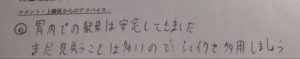 コメント・上級医からのアドバイス:
胃内での観察は安定してきました
まだ見失うことは多いので、シェイクを多用しましょう